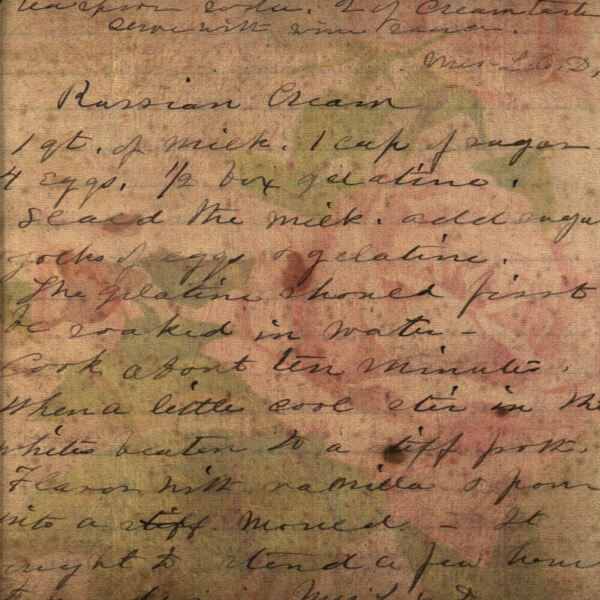 teaspoon soda. 2 of Cream tarta
serve with wine sauce.
Mrs. L. C. D,
Russian Cream
1 qt. of milk. 1 cup of sugar
4 eggs. 1/2 box gelatine.
Scald the milk. add suga
yolks of eggs & gelatine.
The gelatine should first
be soaked in water -
Cook about ten minutes.
When a little cool stir in the
whites beaten to a stiff froth.
Flavor with vanilla & pour
into a stiff mould. - It
ought to stand a few hour
Mrs. L. D